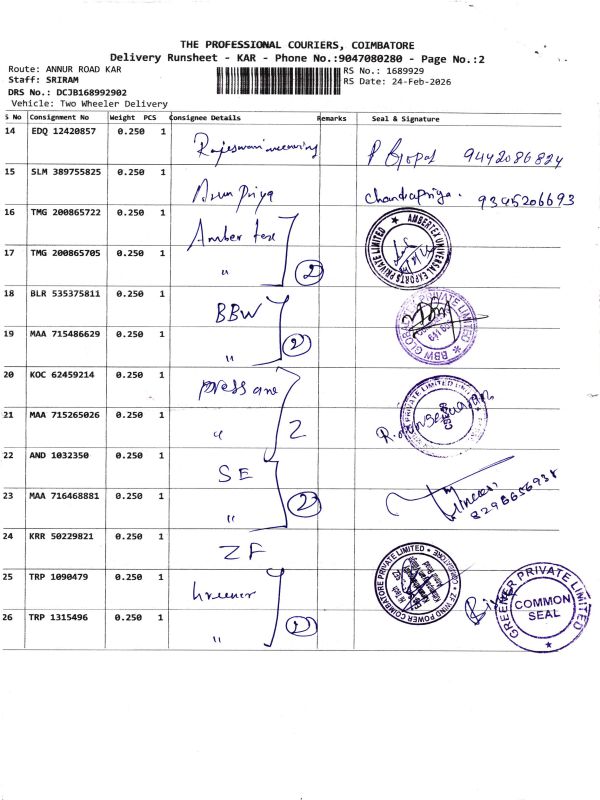 THE PROFESSIONAL COURIERS, COIMBATORE
Delivery Runsheet - KAR - Phone No.:9047080280 - Page No.:2
Route: ANNUR ROAD KAR
RS No.: 1689929
Staff: SRIRAM
RS Date: 24-Feb-2026
DRS No.: DCJB168992902
Vehicle: Two Wheeler Delivery
S No Consignment No Weight PCS Consignee Details Remarks Seal & Signature
14 EDQ 12420857 0.250 1 9442086824
15 SLM 389755825 0.250 1 Arun Priya Chandrapriya. 9345206693
16 TMG 200865722 0.250 1 Amber tex AMBERTEX UNIVERSAL EXPORTS PRIVATE LIMITED
17 TMG 200865705 0.250 1 " 2
18 BLR 535375811 0.250 1 BBW BBW GLOBAL PRIVATE LIMITED
19 MAA 715486629 0.250 1 " 2
20 KOC 62459214 0.250 1 press ane PRIVATE LIMITED
21 MAA 715265026 0.250 1 " 2
22 AND 1032350 0.250 1 SE
23 MAA 716468881 0.250 1 " 2 8298656938
24 KRR 50229821 0.250 1 ZF ZF WIND POWER COIMBATORE PRIVATE LIMITED
25 TRP 1090479 0.250 1 Greener GREENER PRIVATE LIMITED COMMON SEAL
26 TRP 1315496 0.250 1 "